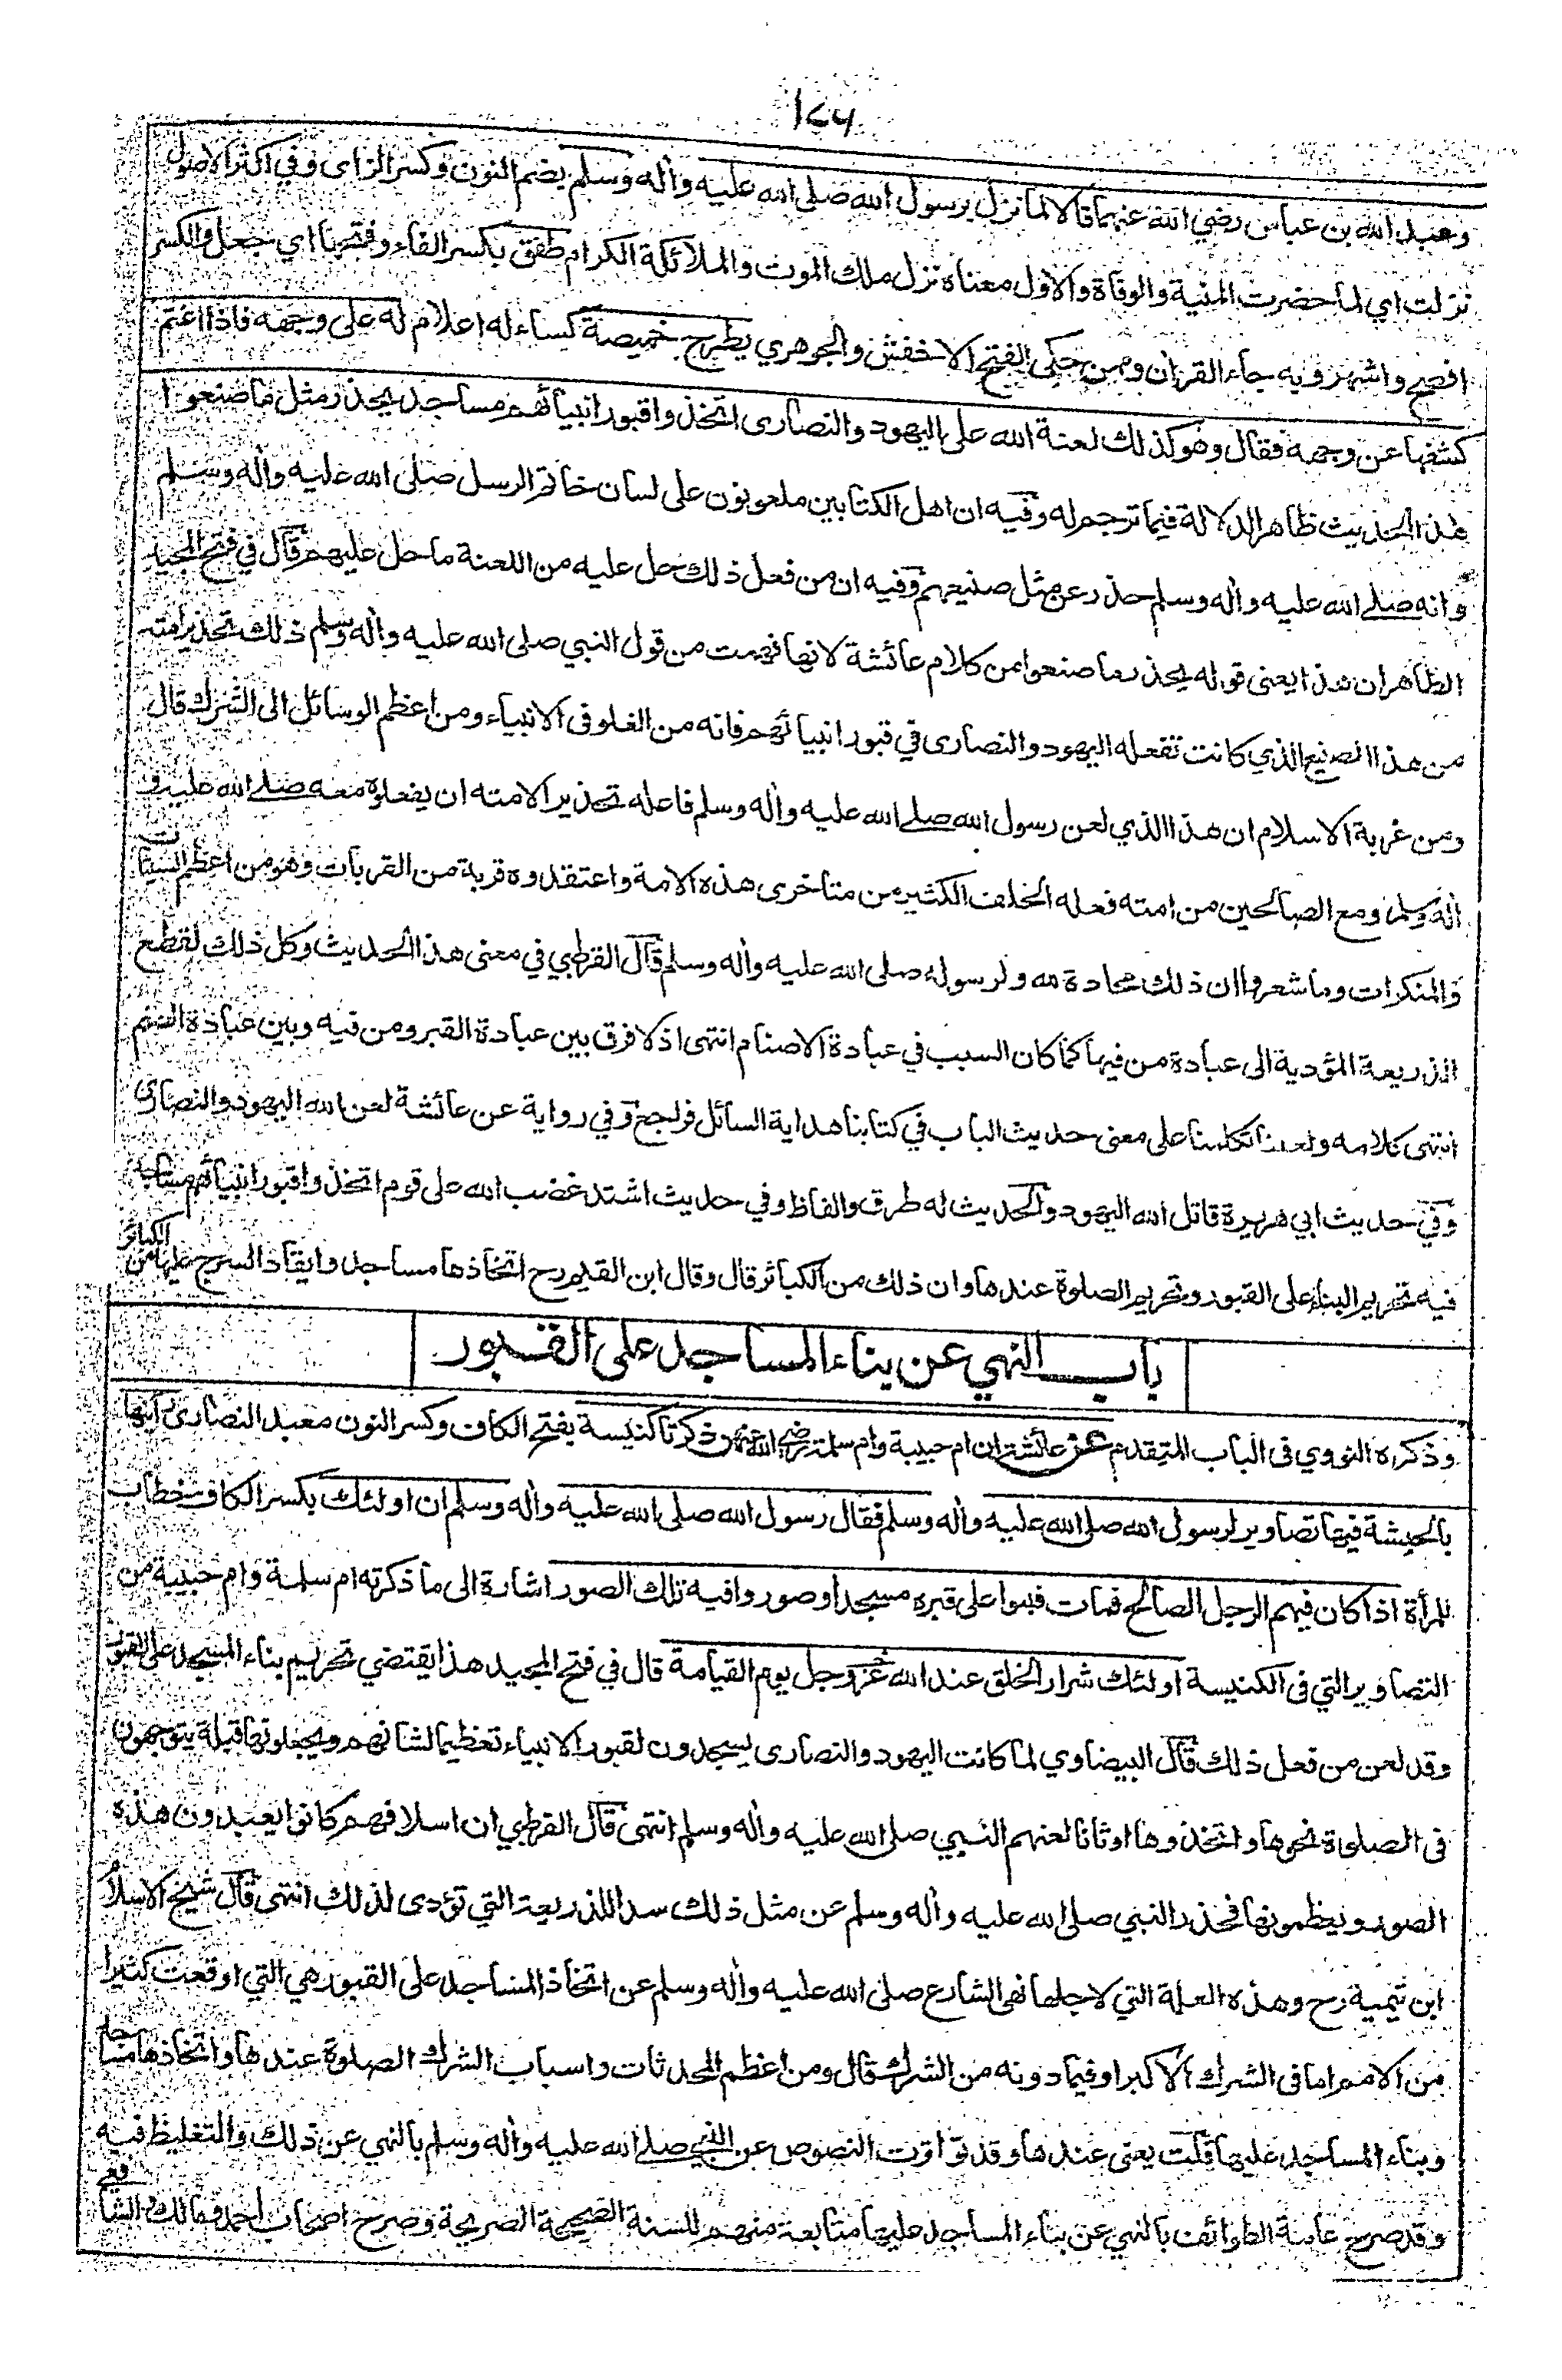 ١٧٦
وعبد الله بن عباس رضي الله عنهما قالا لما نزل برسول الله صلى الله عليه وأله وسلم بضم النون وكسر الزاى وفي اكثر الاصول
نزلت اي لما حضرت المنية والوفاة والاول معناه نزل ملك الموت والملائكة الكرام طفق بكسر الفاء وفتحها اي جعل والكسر
افصح واشهر وبه جاء القرأن وممن حكى الفتح الاخفش والجوهري يطرح خميصة كساء له اعلام له على وجهه فاذا اغتم
كشفها عن وجهه فقال وهو كذلك لعنة الله على اليهود والنصارى اتخذوا قبور انبيائهم مساجد يحذر مثل ما صنعوا
هذا الحديث ظاهر الدلالة فيما ترجم له وفيه ان اهل الكتابين ملعونون على لسان خاتم الرسل صلى الله عليه واله وسلم
وانه صلى الله عليه واله وسلم حذر عن مثل صنيعهم وفيه ان من فعل ذلك حل عليه من اللعنة ما حل عليهم قال في فتح المجيد
الظاهر ان هذا يعنى قوله يحذر ما صنعوا من كلام عائشة لانها فهمت من قول النبي صلى الله عليه واله وسلم ذلك تحذير امته
من هذا الصنيع الذي كانت تفعله اليهود والنصارى في قبور انبيائهم فانه من الغلو فى الانبياء ومن اعظم الوسائل الى الشرك قال
ومن غربة الاسلام ان هذا الذي لعن رسول الله صلى الله عليه واله وسلم فاعله تحذيرا لامته ان يفعلوه معه صلى الله عليه و
اله وسلم ومع الصالحين من امته فعله الخلف الكثير من متاخرى هذه الامة واعتقدوه قربة من القربات وهو من اعظم السيئات
والمنكرات وما شعروا ان ذلك محادة لله ولرسوله صلى الله عليه واله وسلم قال القرطبي في معنى هذا الحديث وكل ذلك لقطع
الذريعة المؤدية الى عبادة من فيها كما كان السبب في عبادة الاصنام انتهى اذ لا فرق بين عبادة القبر ومن فيه وبين عبادة الصنم
انتهى كلامه وتكلمنا على معنى حديث الباب في كتابنا هداية السائل فراجع وفي رواية عن عائشة لعن الله اليهود والنصارى
وفي حديث ابي هريرة قاتل الله اليهود والحديث له طرق والفاظ وفي حديث اشتد غضب الله على قوم اتخذوا قبور انبيائهم مساجد
فيه تحريم البناء على القبور وتحريم الصلوة عندها وان ذلك من الكبائر قال وقال ابن القيم رح اتخاذها مساجد وايقاد السرج عليها من الكبائر
باب النهي عن بناء المساجد على القبور
وذكره النووي فى الباب المتقدم عن عائشة ان ام حبيبة وام سلمة رضي الله عنهن ذكرتا كنيسة بفتح الكاف وكسر النون معبد النصارى رأينها
بالحبشة فيها تصاوير لرسول الله صلى الله عليه وأله وسلم فقال رسول الله صلى الله عليه وأله وسلم ان اولئك بكسر الكاف خطاب
للمرأة اذا كان فيهم الرجل الصالح فمات فبنوا على قبره مسجدا وصوروا فيه تلك الصور اشارة الى ما ذكرته ام سلمة وام حبيبة من
التصاوير التي فى الكنيسة اولئك شرار الخلق عند الله عز وجل يوم القيامة قال في فتح المجيد هذا يقتضي تحريم بناء المسجد على القبور
وقد لعن من فعل ذلك قال البيضاوي لما كانت اليهود والنصارى يسجدون لقبور الانبياء تعظيما لشانهم ويجعلونها قبلة يتوجهون
فى الصلوة نحوها واتخذوها اوثانا لعنهم النبي صلى الله عليه واله وسلم انتهى قال القرطبي ان اسلافهم كانوا يعبدون هذه
الصور ويعظمونها فحذر النبي صلى الله عليه وأله وسلم عن مثل ذلك سدا للذريعة التي تؤدى لذلك انتهى قال شيخ الاسلام
ابن تيمية رح وهذه العلة التي لاجلها نهى الشارع صلى الله عليه وأله وسلم عن اتخاذ المساجد على القبور هي التي اوقعت كثيرا
من الامم اما فى الشرك الاكبر او فيما دونه من الشرك قال ومن اعظم المحدثات واسباب الشرك الصلوة عندها واتخاذها مساجد
وبناء المساجد عليها قلت يعنى عندها وقد تواترت النصوص عن النبي صلى الله عليه وأله وسلم بالنهي عن ذلك والتغليظ فيه
وقد صرح عامة الطوائف بالنهي عن بناء المساجد عليها متابعة منهم للسنة الصحيحة الصريحة وصرح اصحاب احمد ومالك والشافعي